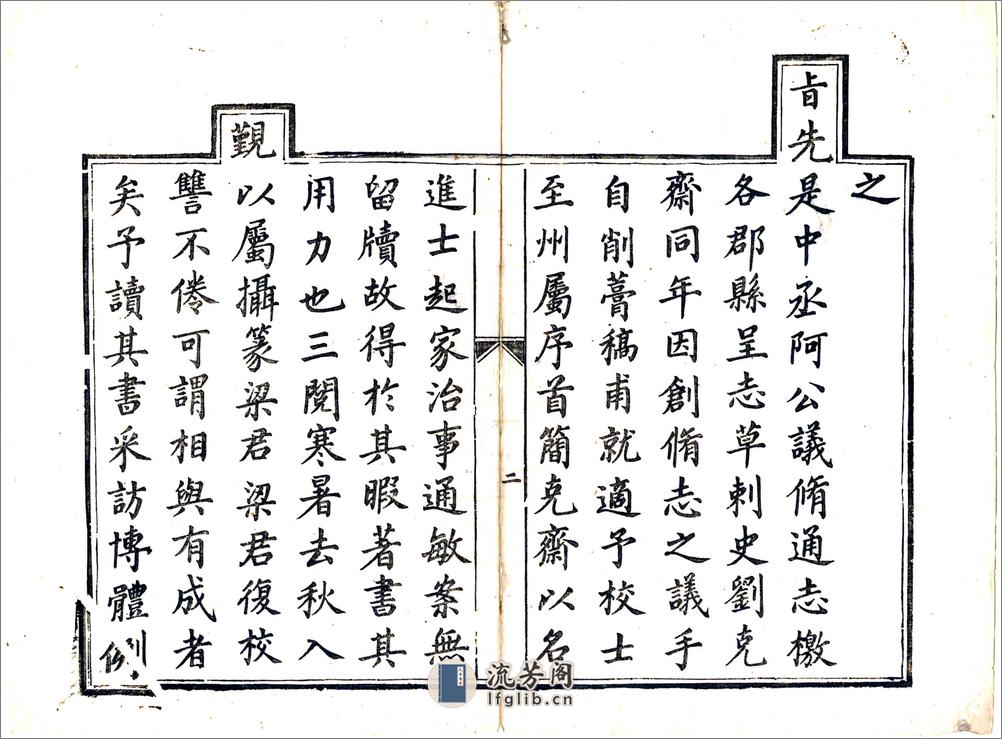 之
旨先是中丞阿公議脩通志檄
各郡縣呈志草刺史劉克
齋同年因創脩志之議手
自削藳稿甫就適予校士
至州屬序首簡克齋以名
二
進士起家治事通敏案無
留牘故得於其暇著書其
用力也三閱寒暑去秋入
覲以屬攝篆梁君梁君復校
讐不倦可謂相與有成者
矣予讀其書采訪博體例
流芳阁
lfglib.cn